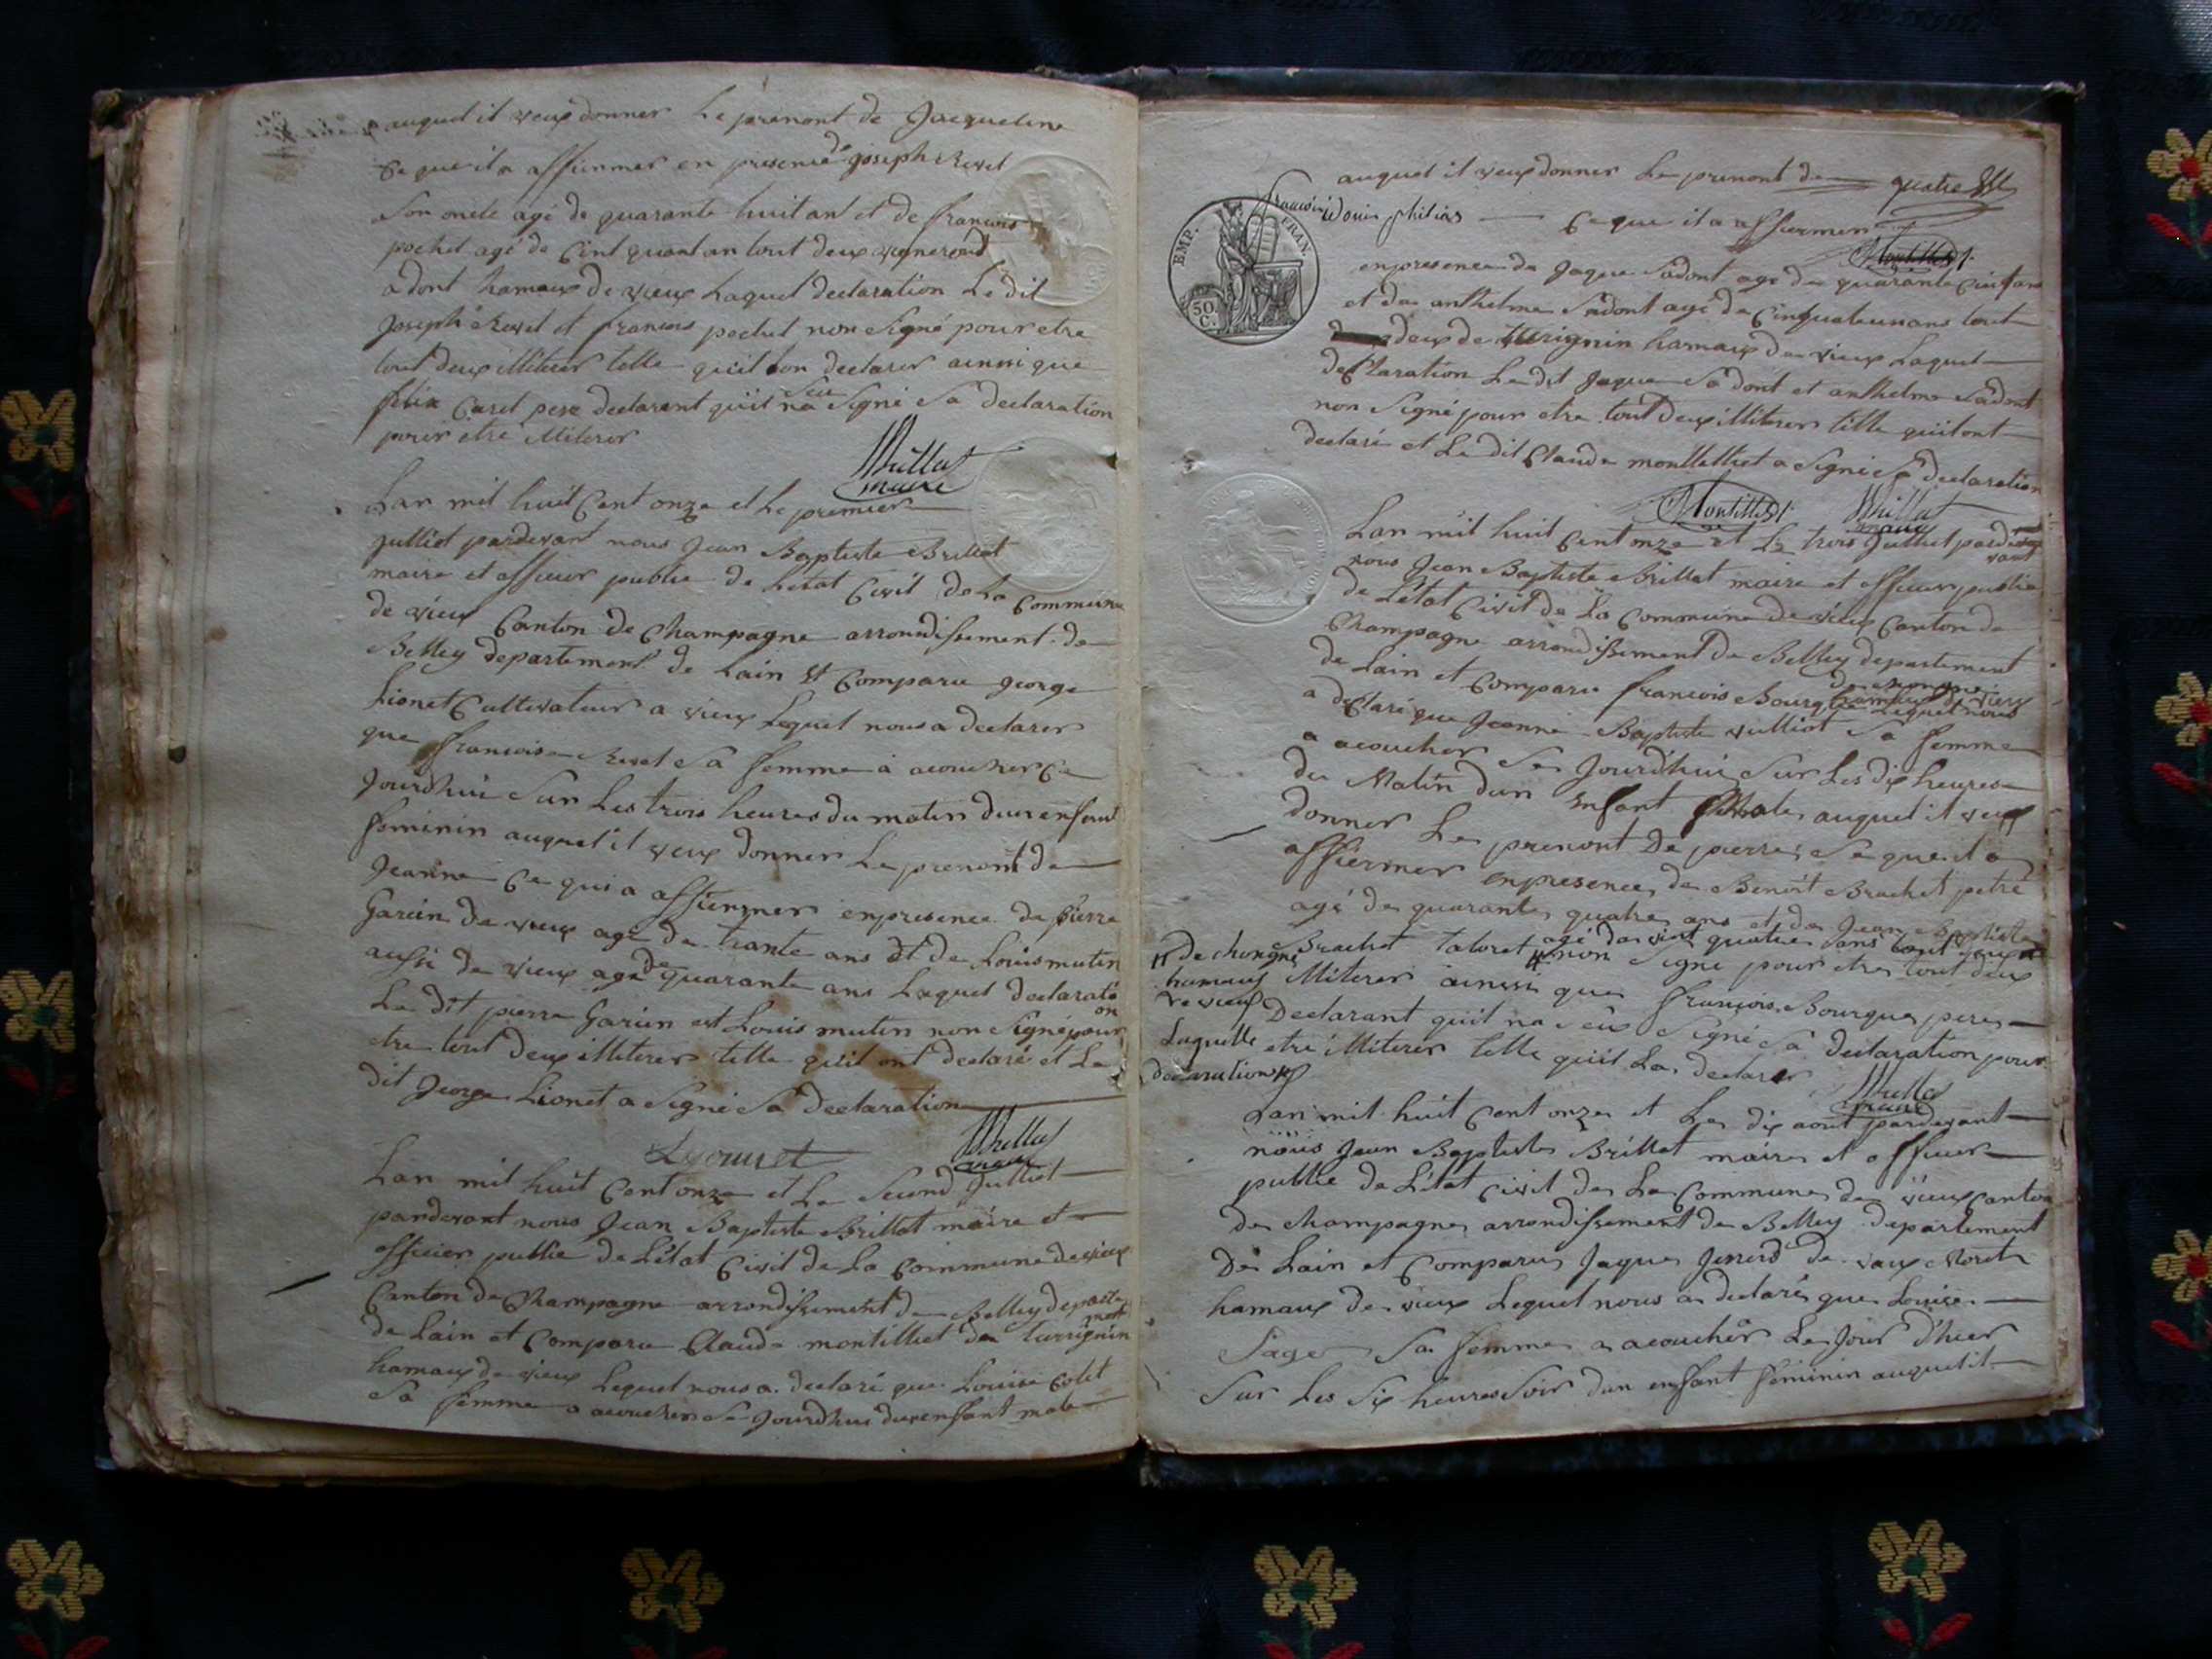 auquel il veux donner le prenont de Jacqueline
Ce que il a affiermer en presence de joseph Revel
Son oncle agé de quarante huit ant et de francois
pochet agé de Cint quant an tout deux vigneront
adont hamaux de vieux Laquel declaration Le dit
Joseph Revel et francois pochet non Signé pour etre
tout deux illiterer telle quil on declarer ainsi que
felix Caret pere declarant quil na Seu Signé Sa declaration
pour etre illiterer
Brillat
maire
Lan mil huit Cent onze et le premier
julliet pardevant nous Jean Baptiste Brillat
maire et officier public de letat Civil de La Commune
de vieux Canton de Champagne arrondissement de
Belley departement de Lain et Comparu george
Lionet Cultivateur a vieux Lequel nous a declarer
que francoise Revel Sa femme a acoucher Ce
Jourdhui Sur Les trois heures du matin dun enfant
feminin auquel il veux donner Le prenont de
Jeanne Ce qui a affiermer en presence de pierre
Garin de vieux agé de trante ans et de Louis mutin
aussi de vieux agé de quarante ans Laquel declarati
on
Le dit pierre Garin et Louis mutin non Signé pour
etre tout deux illiterer telle quil ont declaré et Le
dit George Lionet a Signé Sa declaration
Lyonnet
Brillat
maire
Lan mil huit Cent onze et Le Second Julliet
pardevant nous Jean Baptiste Brillat maire et
officier public de Létat Civil de La Commune de vieux
Canton de Champagne arrondissement de Belley departe
ment
de Lain et Comparu Claude montilliet de turrignin
hamaux de vieux Lequel nous a declaré que Louise Colet
Sa femme a acoucher Se Jourdhui dun enfant male
auquel il veux donner Le prenont de quatre
francois Louis philias Ce que il a affiermer
Montilliet
EMP. FRAN.
50 C.
en presence de Jaque Sadont agé de quarante Cint ans
et de anthelme Sadont agé de Cinquateun ans tout
deux de turignin hamaux de vieux Laquel
declaration Le dit Jaque Sadont et anthelme Sadont
non Signé pour etre tout deux illiterer telle quil ont
declaré et Le dit Claude montilliet a Signé Sa declaration
Montilliet
Brillat
maire
Lan mil huit Cent onze et Le trois Julliet parde
vant
nous Jean Baptiste Brillat maire et officier public
de Létat Civil de La Commune de vieux Canton de
Champagne arrondissement de Belley departement
de Lain et Comparu francois Bourg de chongne
hamaux de vieux Lequel nous
a declaré que Jeanne Baptiste vulliot Sa femme
a acoucher Se Jourdhui Sur Les dix heures
du Matin dun enfant Male auquel il veux
donner Le prenont De pierre Se que il a
affiermer en presence de Benoit Brachet petre
agé de quarante quatre ans et de Jean Baptiste
Brachet agé de vint quatre ans tout deux
de chongne
hamaux
de vieux
Laquelle
declaration
non Signé pour etre tout deux
illiterer ainssi que francois Bourgue pere
Declarant quil na Seu Signé Sa declaration pour
etre illiterer telle quil La declarer
Brillat
maire
Lan mil huit Cent onze et Le dix aout pardevant
nous Jean Baptiste Brillat maire et officier
public de Létat Civil de La Commune de vieux Canton
de Champagne arrondissement de Belley departement
De Lain et Comparu Jaque Jenerd de vaux Moret
hamaux de vieux Lequel nous a declaré que Louise
Sage Sa femme a acouchér Le Jour D'hier
Sur Les Six heures Soir dun enfant feminin auquel il